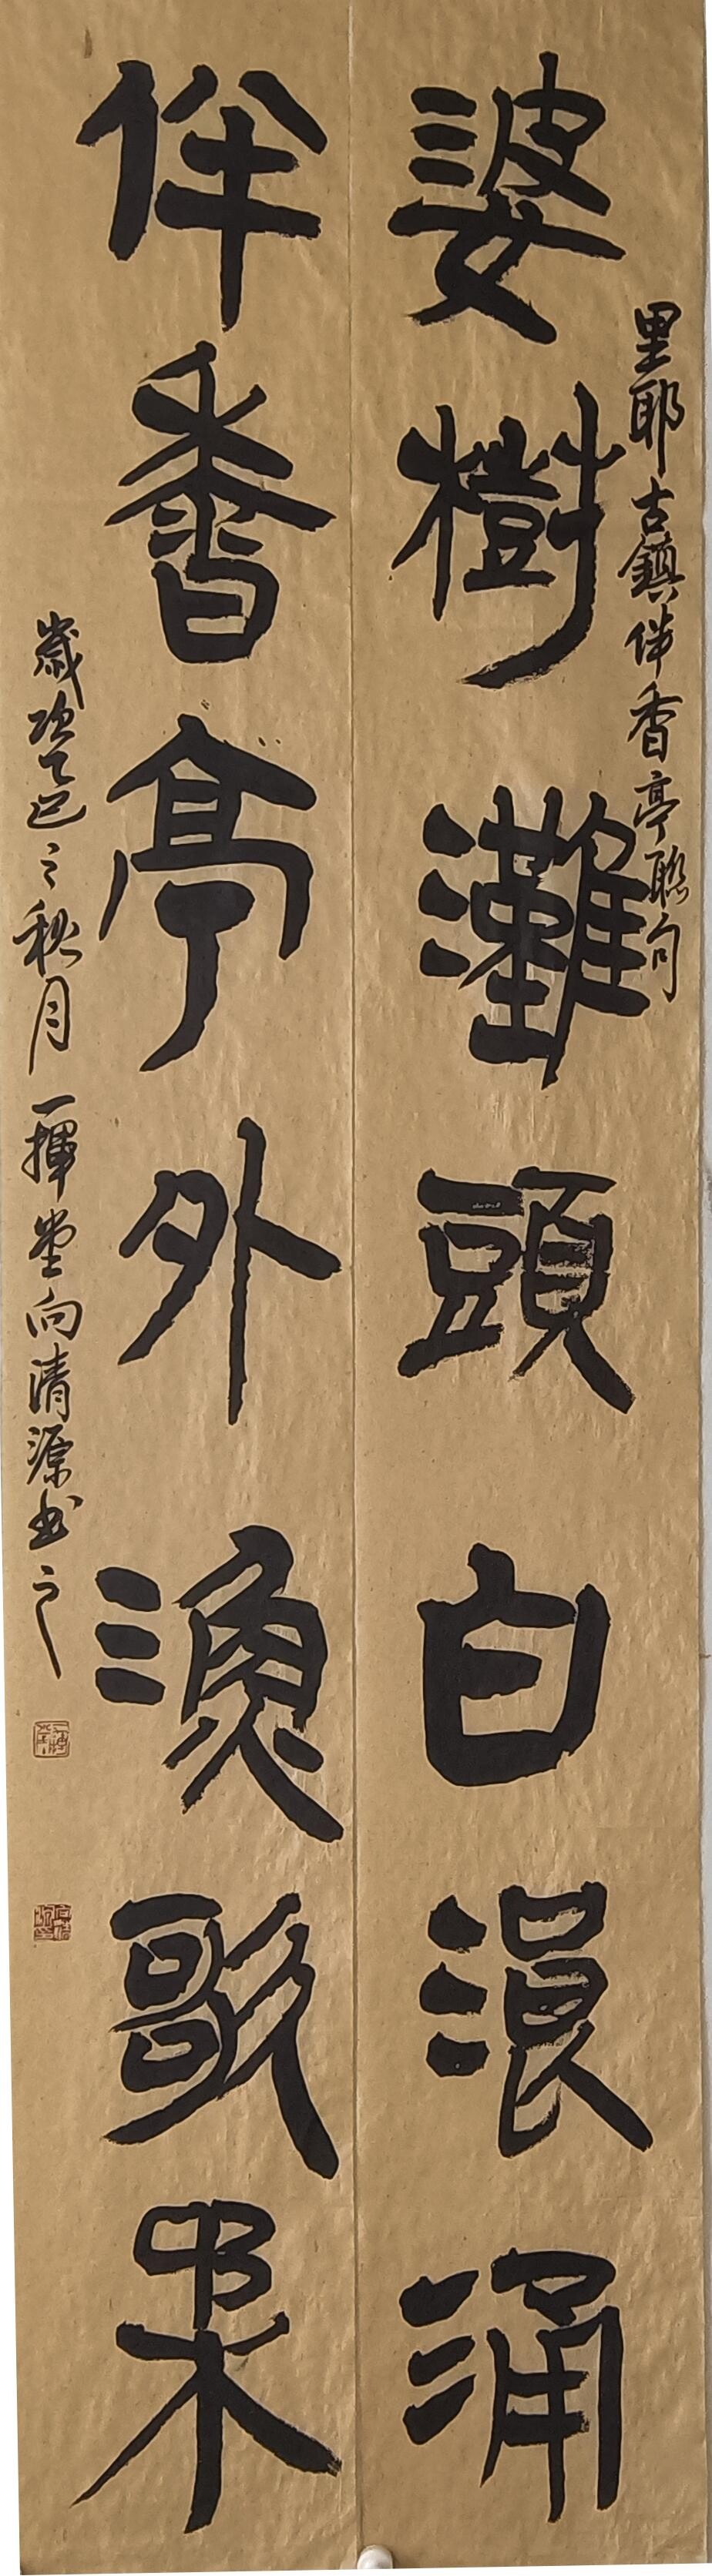 里耶古鎮伴香亭聯句
婆樹灘頭白浪涌
伴香亭外漁歌柔
歲次乙巳之秋月一揮堂向清源书之